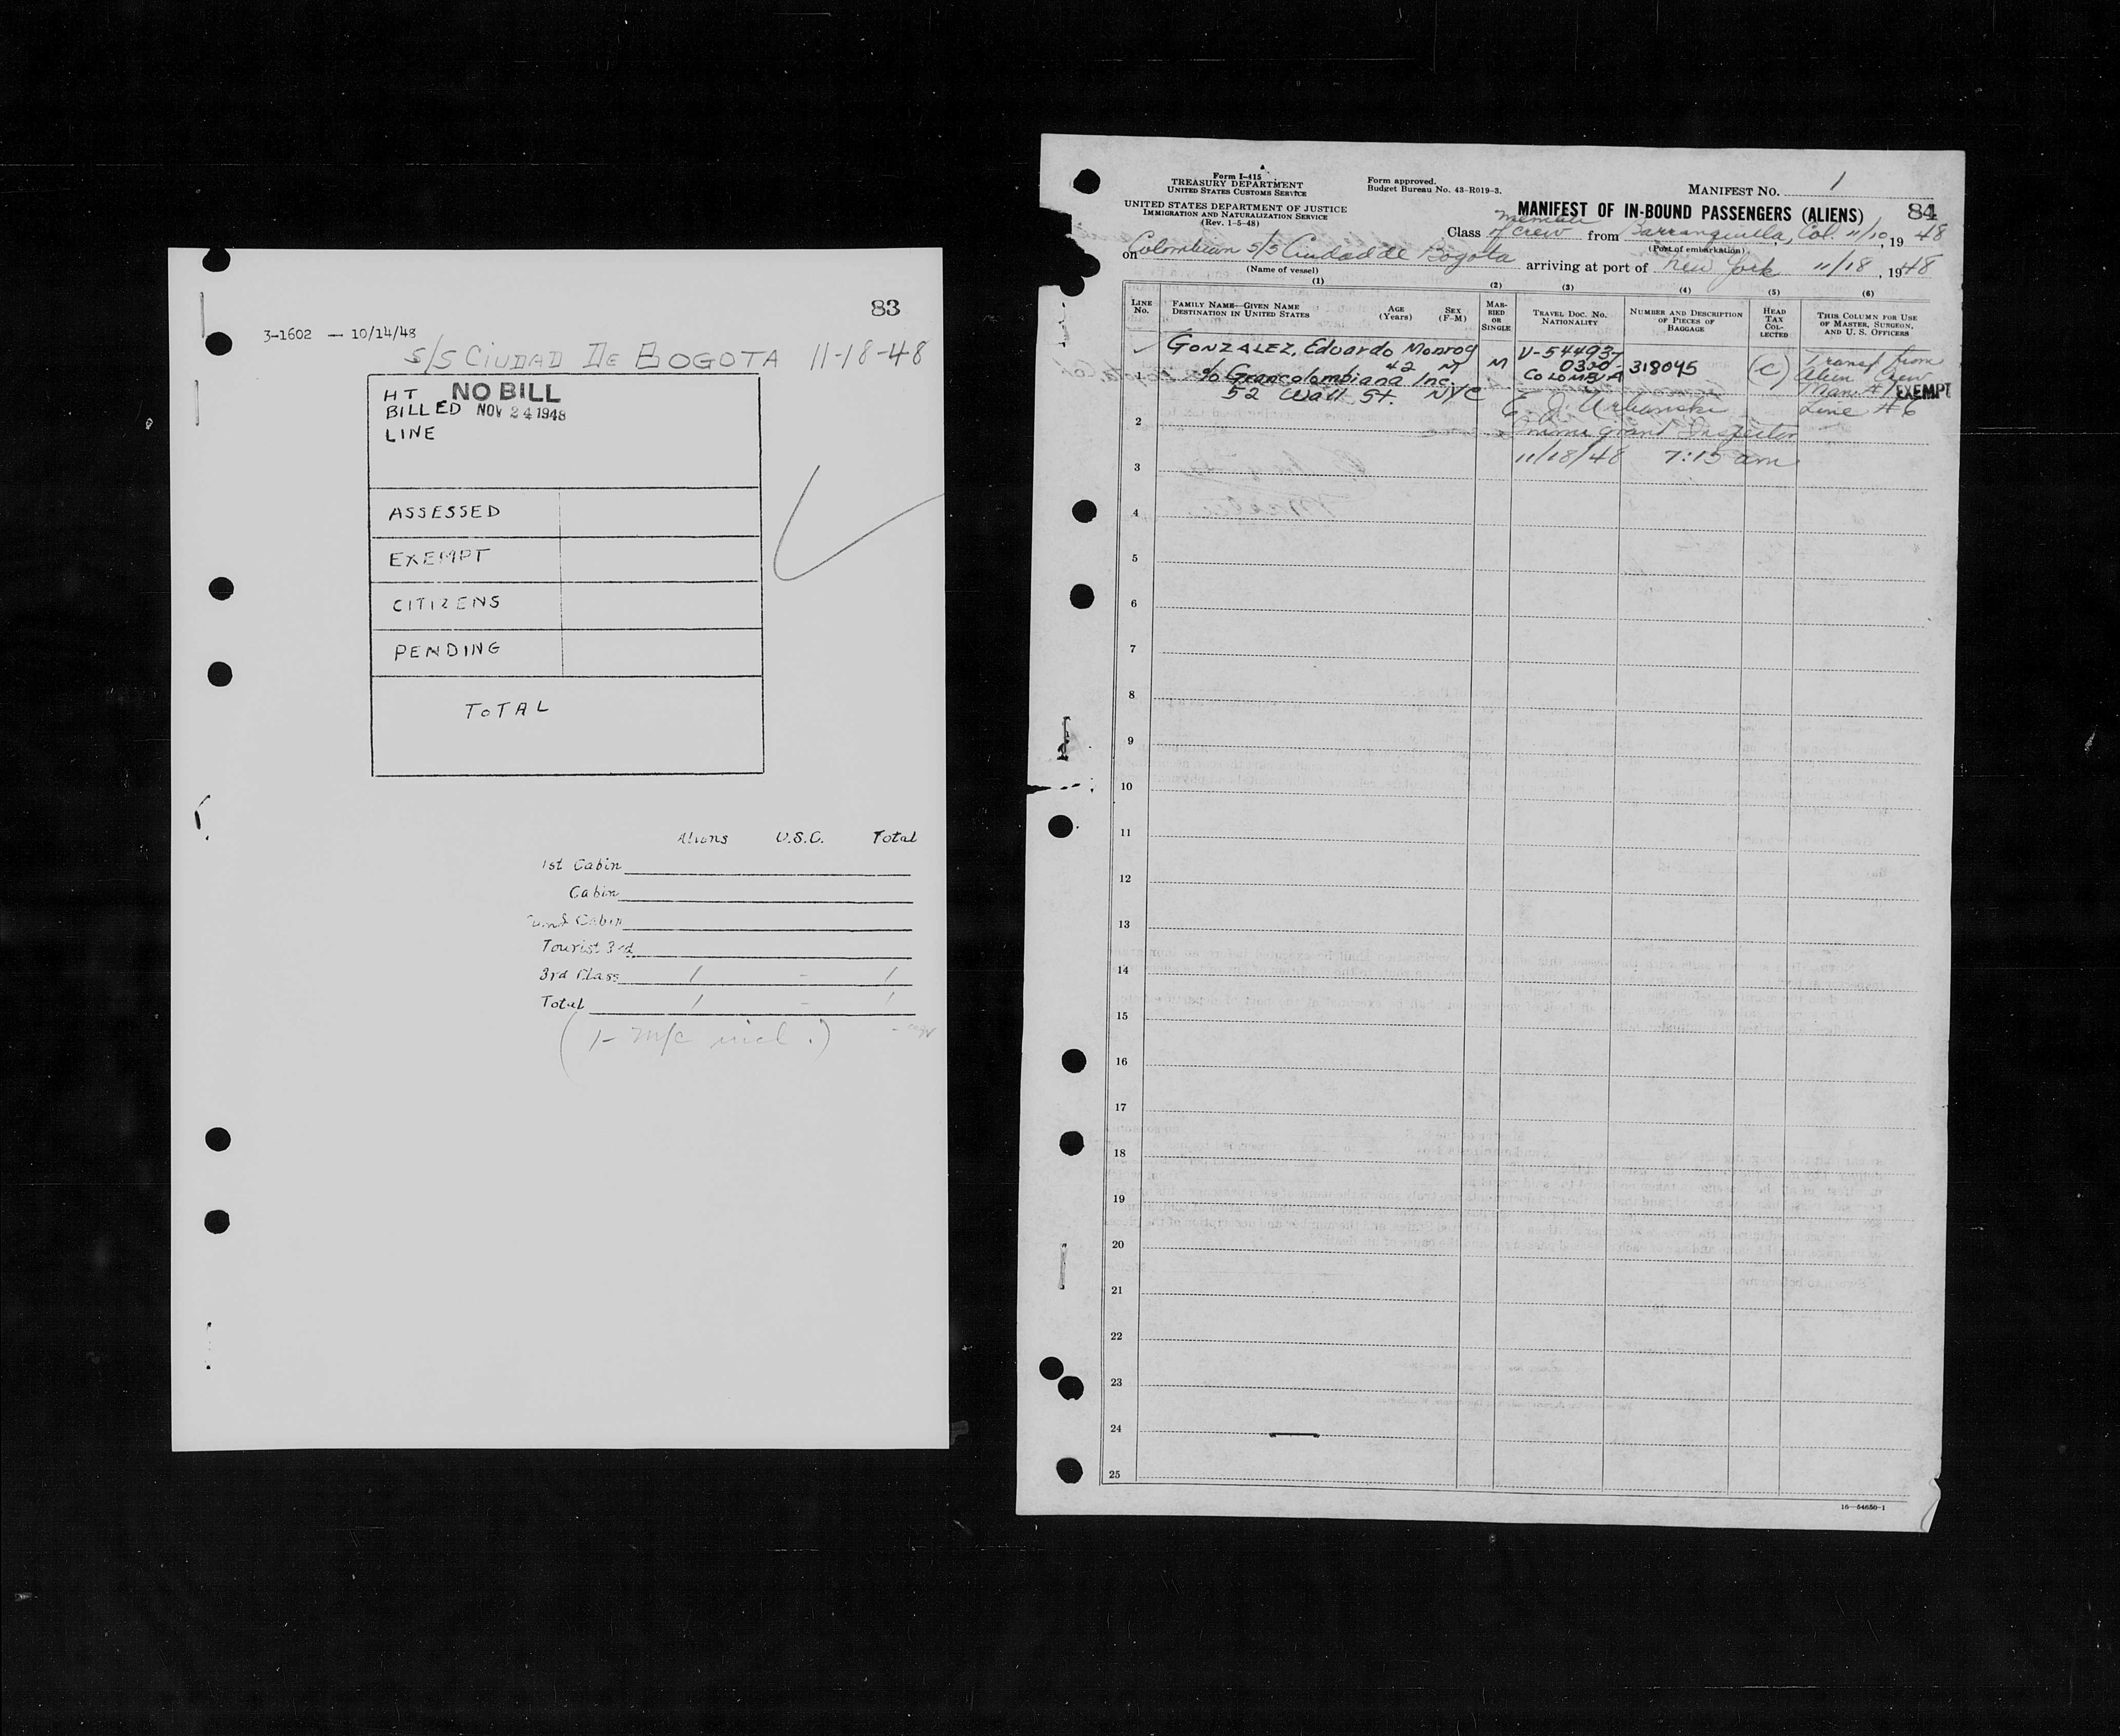 83
3-1602 — 10/14/48
S/S CIUDAD DE BOGOTA 11-18-48
HT NO BILL
BILLED NOV 24 1948
LINE
ASSESSED
EXEMPT
CITIZENS
PENDING
TOTAL
Aliens U.S.C. Total
1st Cabin
Cabin
Cabin
Tourist 3rd
3rd Class 1 - 1
Total 1 - 1
(1- m/c incl.)
Form I-415
TREASURY DEPARTMENT
UNITED STATES CUSTOMS SERVICE
UNITED STATES DEPARTMENT OF JUSTICE
IMMIGRATION AND NATURALIZATION SERVICE
(Rev. 1-5-48)
Form approved.
Budget Bureau No. 43-R019-3.
MANIFEST NO. 1
MANIFEST OF IN-BOUND PASSENGERS (ALIENS) 84
Class member of crew from Barranquilla, Col. 11/10, 1948
(Port of embarkation)
on Colombian S/S Ciudad de Bogota arriving at port of New York 11/18, 1948
(Name of vessel)
(1) (2) (3) (4) (5) (6)
LINE No.
FAMILY NAME—GIVEN NAME
DESTINATION IN UNITED STATES
AGE (Years)
SEX (F-M)
MARRIED OR SINGLE
TRAVEL DOC. NO.
NATIONALITY
NUMBER AND DESCRIPTION OF PIECES OF BAGGAGE
HEAD TAX COLLECTED
THIS COLUMN FOR USE OF MASTER, SURGEON, AND U. S. OFFICERS
GONZALEZ, Eduardo Monroy
42 M M
V-544937
0330
COLOMBIA
318045
(C)
Transf from
Alien Crew
Man. #1
EXEMPT
Line #6
1 c/o Grancolombiana Inc.
52 Wall St. NYC
E. J. Urbanski
Immigrant Inspector
11/18/48 7:15 am
2
3
4
5
6
7
8
9
10
11
12
13
14
15
16
17
18
19
20
21
22
23
24
25
16—54650-1